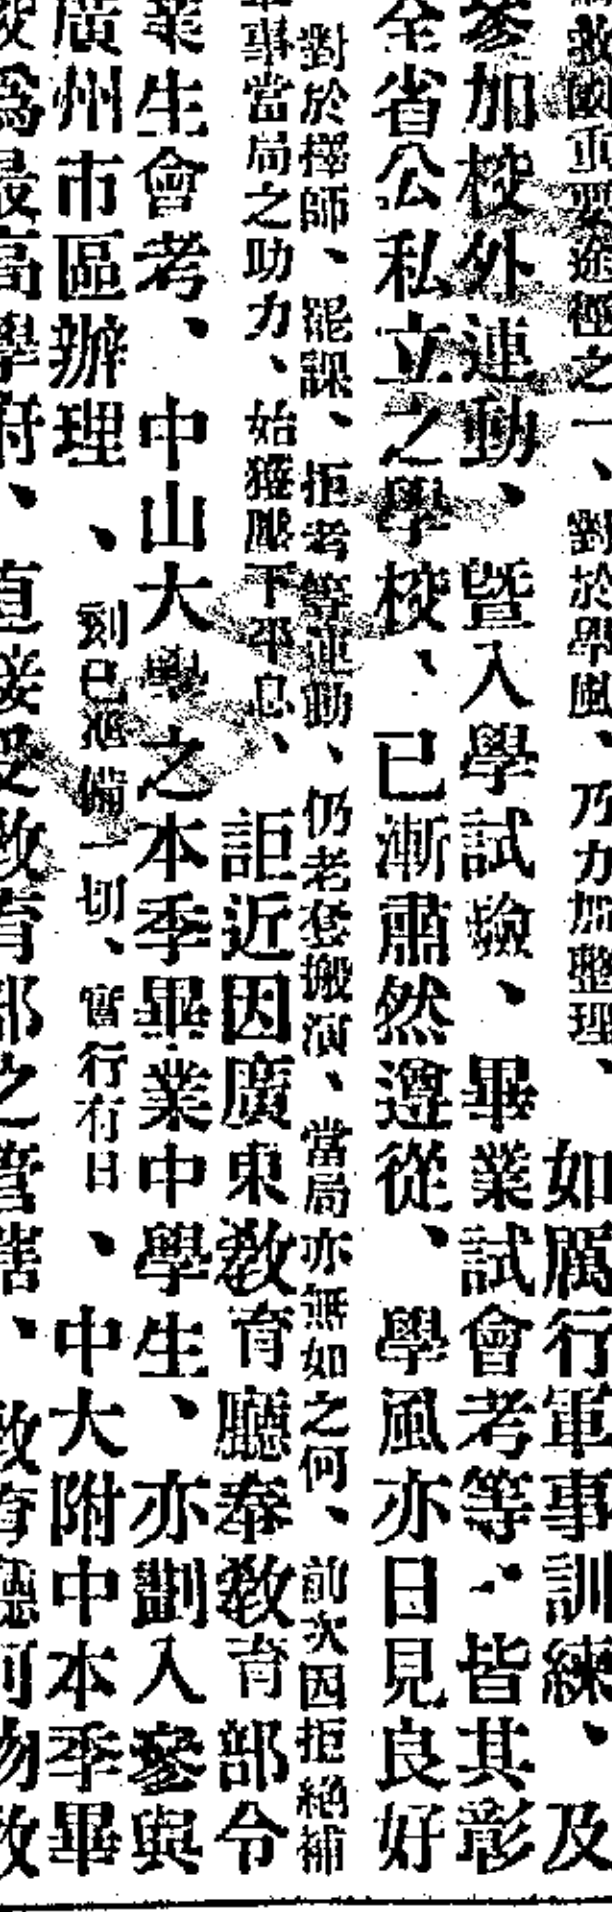 救國重要途徑之一、對於學風、乃力加整理、
如厲行軍事訓練、及
參加校外運動、暨入學試驗、畢業試會考等、皆其彰
全省公私立之學校、已漸肅然遵從、學風亦日見良好
對於擇師、罷課、拒考等運動、仍老套搬演、當局亦無如之何、前次因拒絕補
事當局之助力、始獲壓下平息、
詎近因廣東教育廳奉教育部令
業生會考、中山大學之本季畢業中學生、亦劃入參與
廣州市區辦理、刻已準備一切、實行有日、中大附中本季畢
校爲最高學府、直接受教育部之管轄、教育廳何物敢